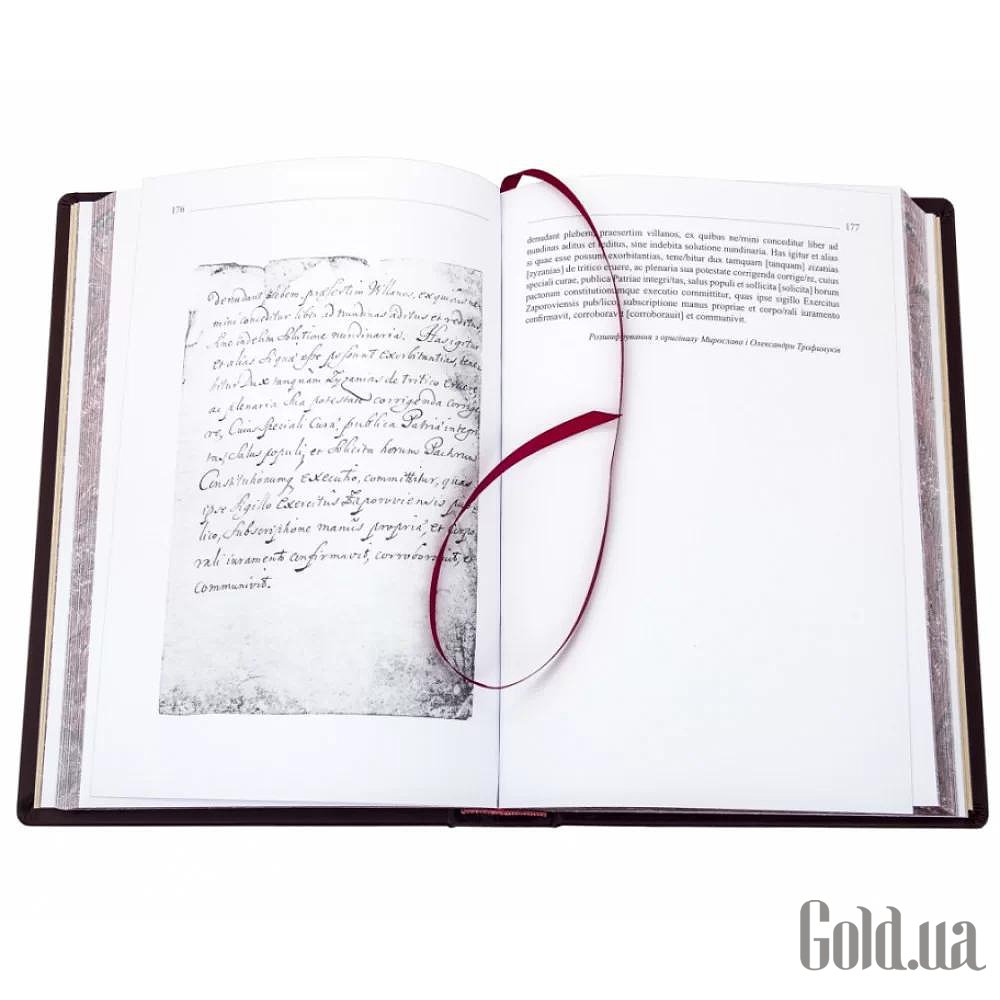 176
Denudant plebem, præsertim Villanos, ex quibus ne
mini conceditur liber ad nundinas aditus et reditus,
Sine indebita Solutione nundinaria. Has igitur
et alias Siquæ esse possunt exorbitantias, tene
bitur Dux tanquàm Zyzanias de tritico eruere,
ac plenaria Sua potestate corrigenda corrige
re, Cuius Speciali Curæ, publica Patriæ integri
tas, Salus populi, et Solicita horum Pactorum
Constitutionumq executio, committitur, quas
ipse Sigillo Exercitus Zaporoviensis pub
lico, Subscriptione manus propriæ, et corpo
rali iuramento confirmavit, corroboravit, et
communivit.
177
denudant plebem, praesertim villanos, ex quibus ne/mini conceditur liber ad
nundinas aditus et reditus, sine indebita solutione nundinaria. Has igitur et alias
si quae esse possunt exorbitantias, tene/bitur dux tamquam [tanquam] zizanias
[zyzanias] de tritico eruere, ac plenaria sua potestate corrigenda corrige/re, cuius
speciali curae, publica Patriae integri/tas, salus populi et sollicita [solicita] horum
pactorum constitutionumque executio committitur, quas ipse sigillo Exercitus
Zaporoviensis pub/lico, subscriptione manus propriae et corpo/rali iuramento
confirmavit, corroboravit [corroborauit] et communivit.
Розшифрування з оригіналу Мирослава і Олександри Трофимуків
Gold.ua